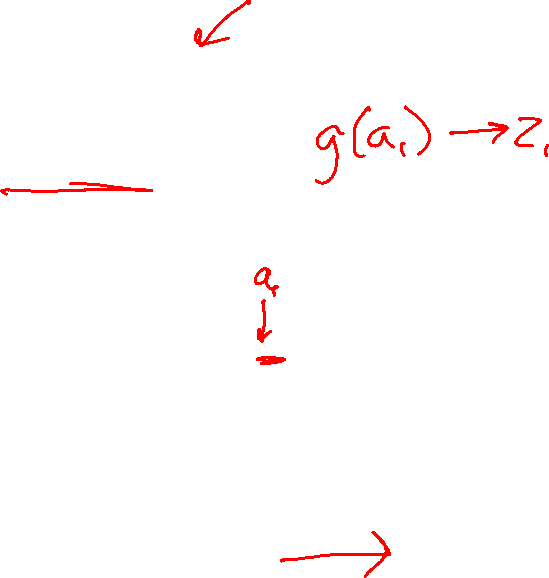 g(a₁) → z₁
a₁